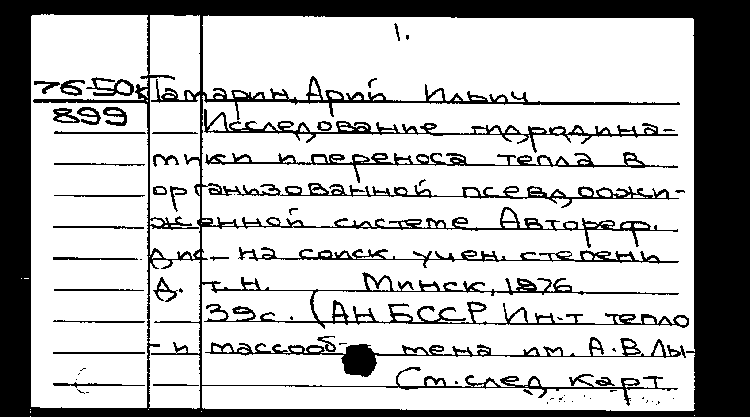 1.
76-50к Тамарин, Арий Ильич
899 Исследование гидродина-
мики и переноса тепла в
организованной псевдоожи-
женной системе. Автореф.
дис. на соиск. учен. степени
д. т. н. Минск, 1976.
39 с. (АН БССР. Ин-т тепло
- и массооб- мена им. А. В. Лы-
См. след. карт